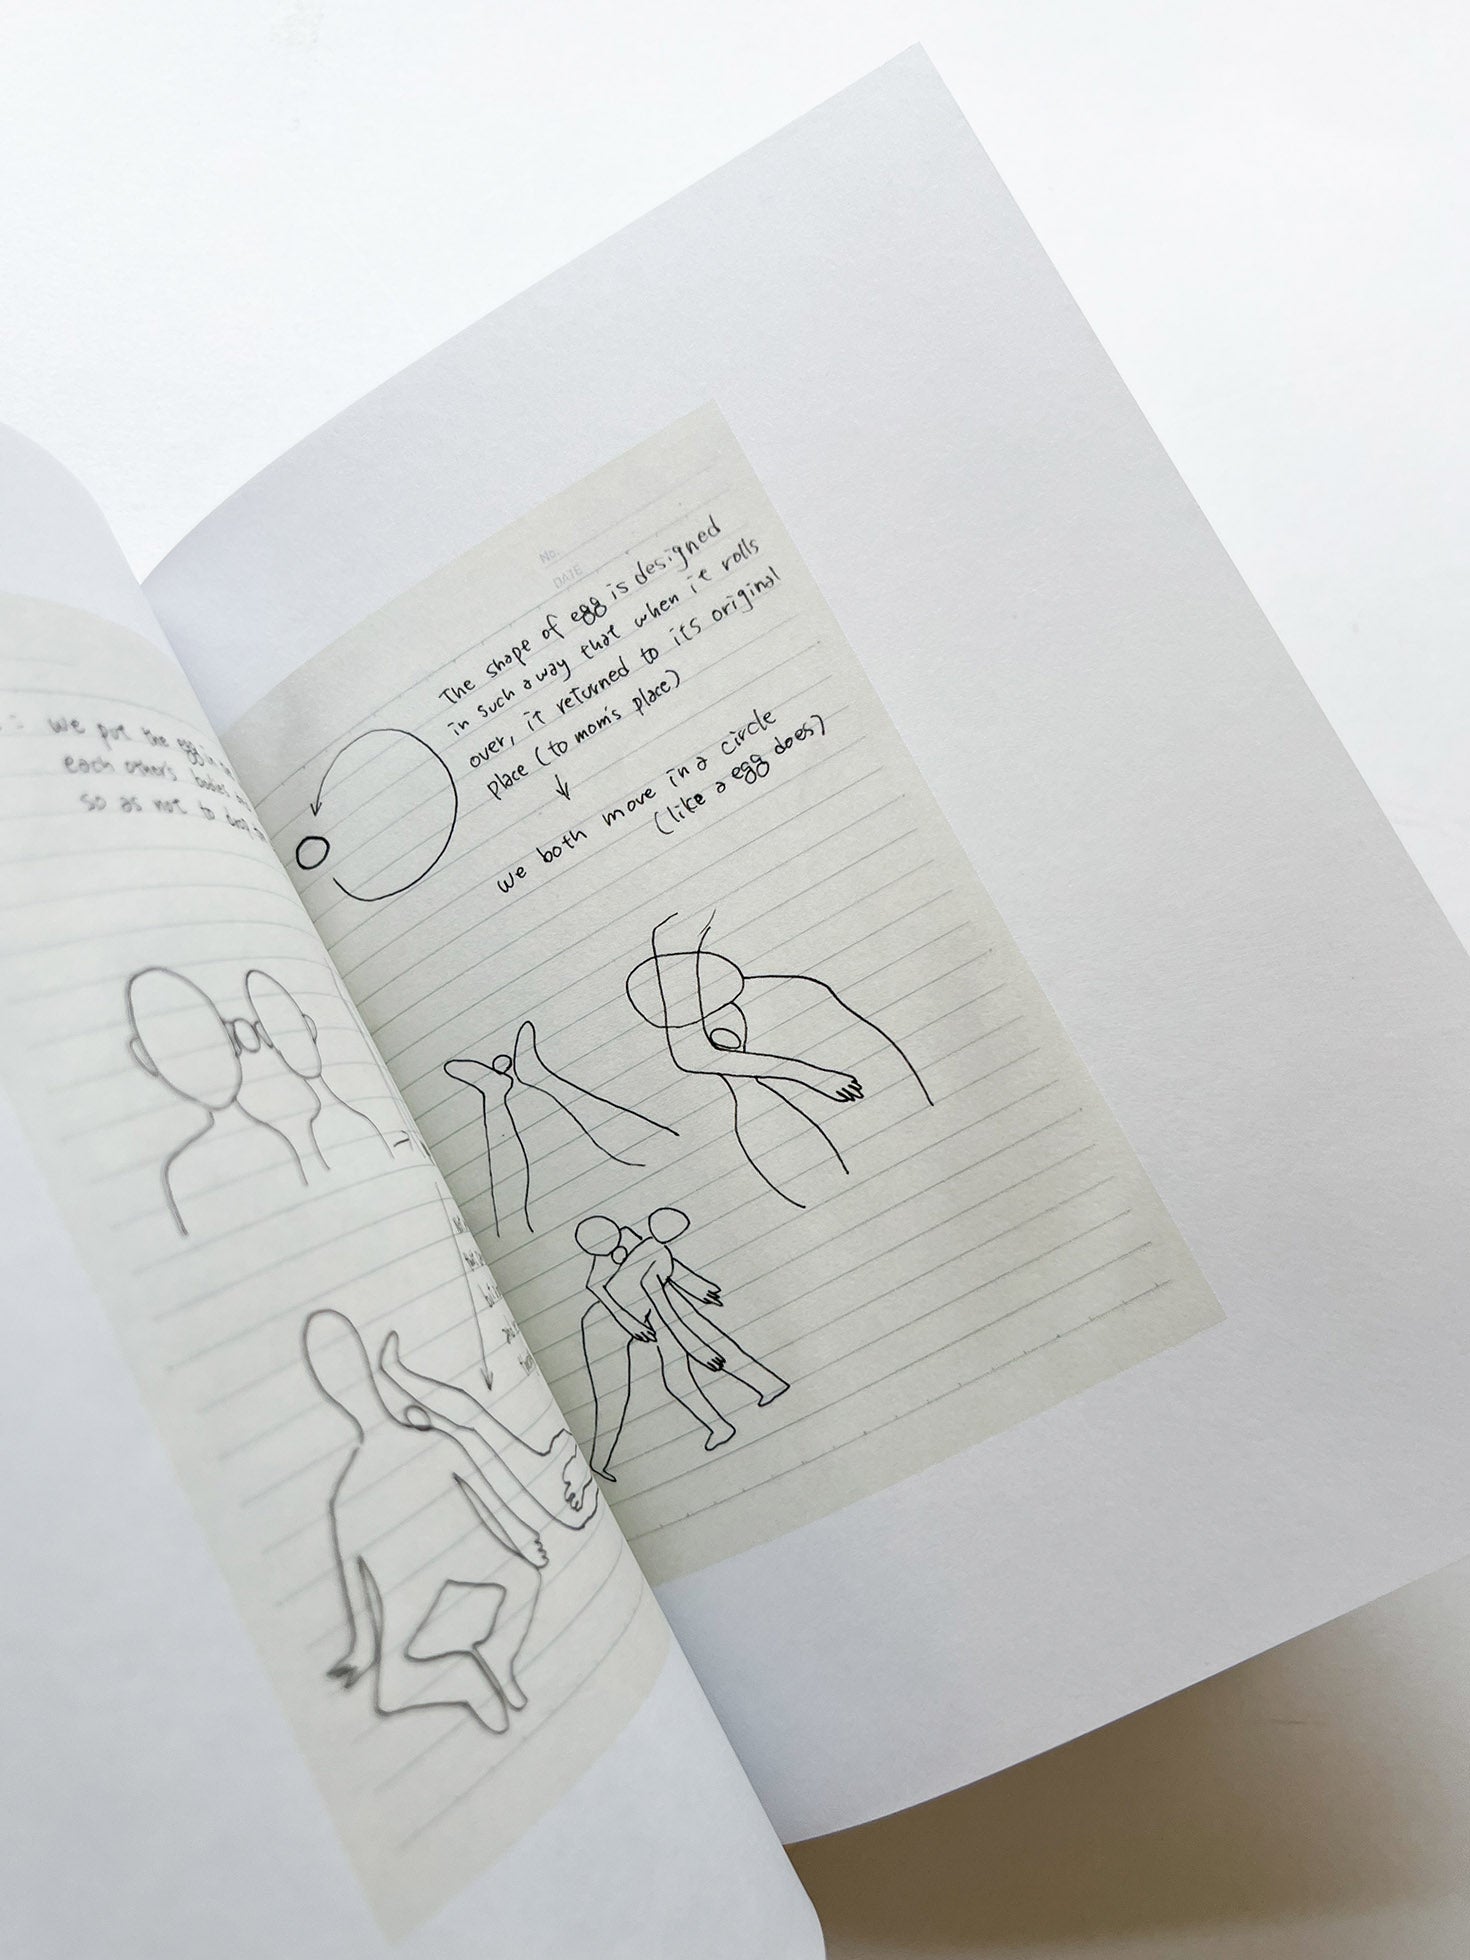 we put the egg in
each other's bodies
so as not to drop
No.
DATE
The shape of egg is designed
in such a way that when it rolls
over, it returned to its original
place (to mom's place)
we both move in a circle
(like a egg does)